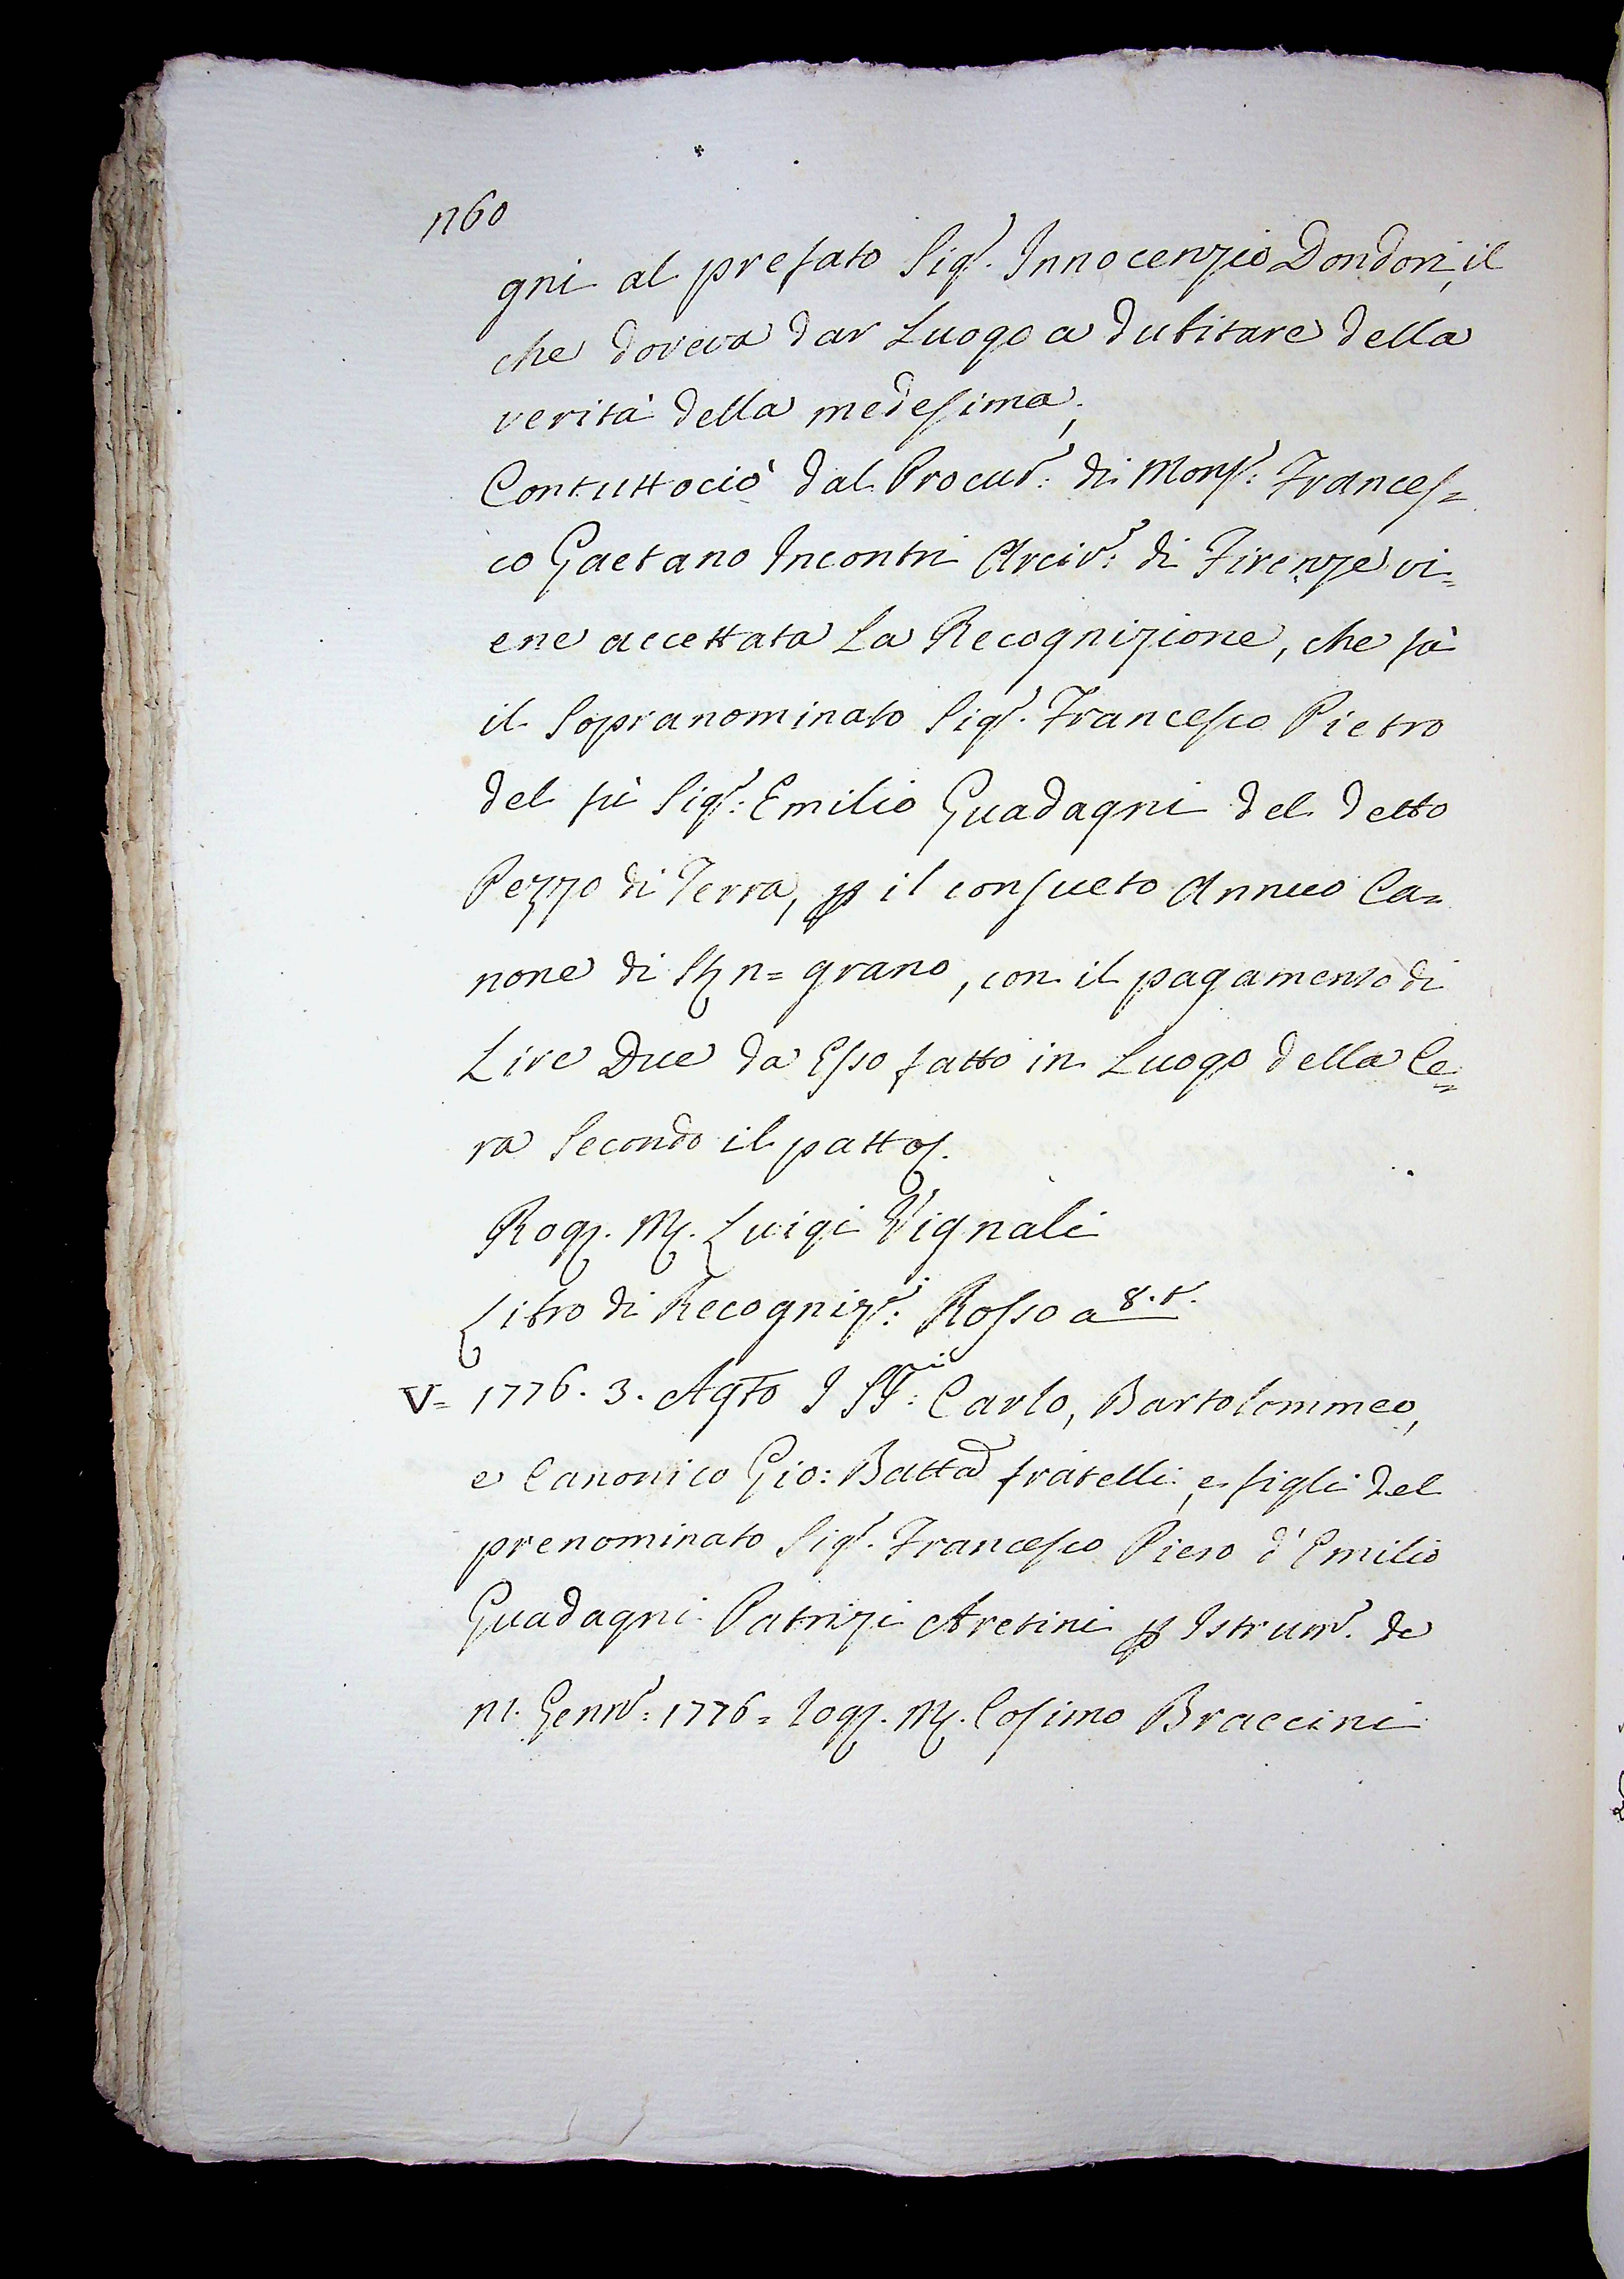 1260
gni al prefato Sigr. Innocenzio Dondori, il
che doveva dar Luogo a dubitare della
verità della medesima;
Contuttociò dal Procur: di Monsr: Frances=
co Gaetano Incontri Arciv: di Firenze vi=
ene accettata La Recognizione, che fà
il Sopranominato Sigr. Francesco Pietro
del fù Sigr: Emilio Guadagni del detto
Pezzo di Terra, p il consueto Annuo Ca=
none di = grano, con il pagamento di
Lire Due da Esso fatto in Luogo della Ce=
ra Secondo il patto.
Rog. M. Luigi Vignali
Libro di Recogniz: Rosso a 8.t.
V= 1776. 3. Agto I SSri: Carlo, Bartolommeo,
e Canonico Gio: Batta fratelli, e figli del
prenominato Sigr. Francesco Piero d'Emilio
Guadagni Patrizi Aretini p Istrum. de
21. Genn: 1776 = Rog. M. Cosimo Braccini